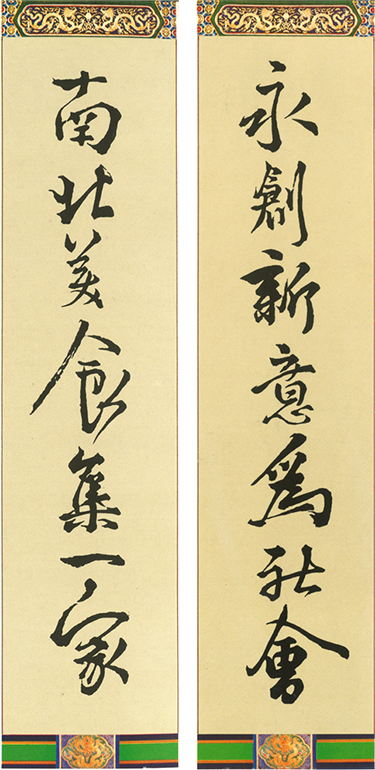 永創新意為社會
南北美食集一家